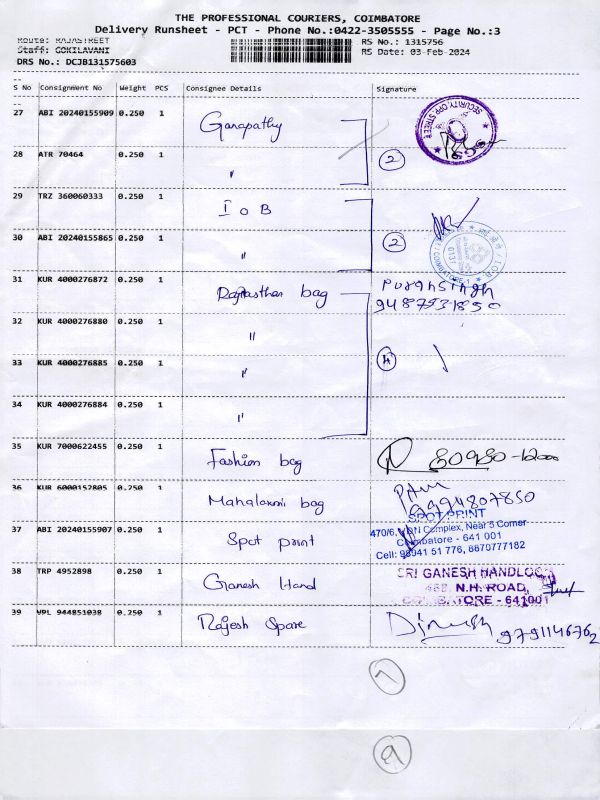 THE PROFESSIONAL COURIERS, COIMBATORE
Delivery Runsheet - PCT - Phone No.:0422-3505555 - Page No.:3
Route: RAJASTREET
Staff: GOKILAVANI
DRS No.: DCJB131575603
RS No.: 1315756
RS Date: 03-Feb-2024
S No Consignment No Weight PCS Consignee Details Signature
27 ABI 20240155909 0.250 1 Ganapathy
28 ATR 70464 0.250 1 〃 2
SECURITY, OPP. STREET
29 TRZ 360060333 0.250 1 I O B
30 ABI 20240155865 0.250 1 〃 2
31 KUR 4000276872 0.250 1 Rajasthan bag Puransingh
9487931850
32 KUR 4000276880 0.250 1 〃
33 KUR 4000276885 0.250 1 〃 4
34 KUR 4000276884 0.250 1 〃
35 KUR 7000622455 0.250 1 Fashion bag
36 KUR 6000152805 0.250 1 Mahalaxmi bag
9994807850
37 ABI 20240155907 0.250 1 Spot print
SPOT PRINT
470/6, Complex, Near 5 Corner
Coimbatore - 641 001
Cell: 98941 51 776, 8870777182
38 TRP 4952898 0.250 1 Ganesh Hand
SRI GANESH HANDLOOM
N.H. ROAD,
COIMBATORE - 641001
39 VPL 944851038 0.250 1 Rajesh Spare Dinesh 9791146762
7
9